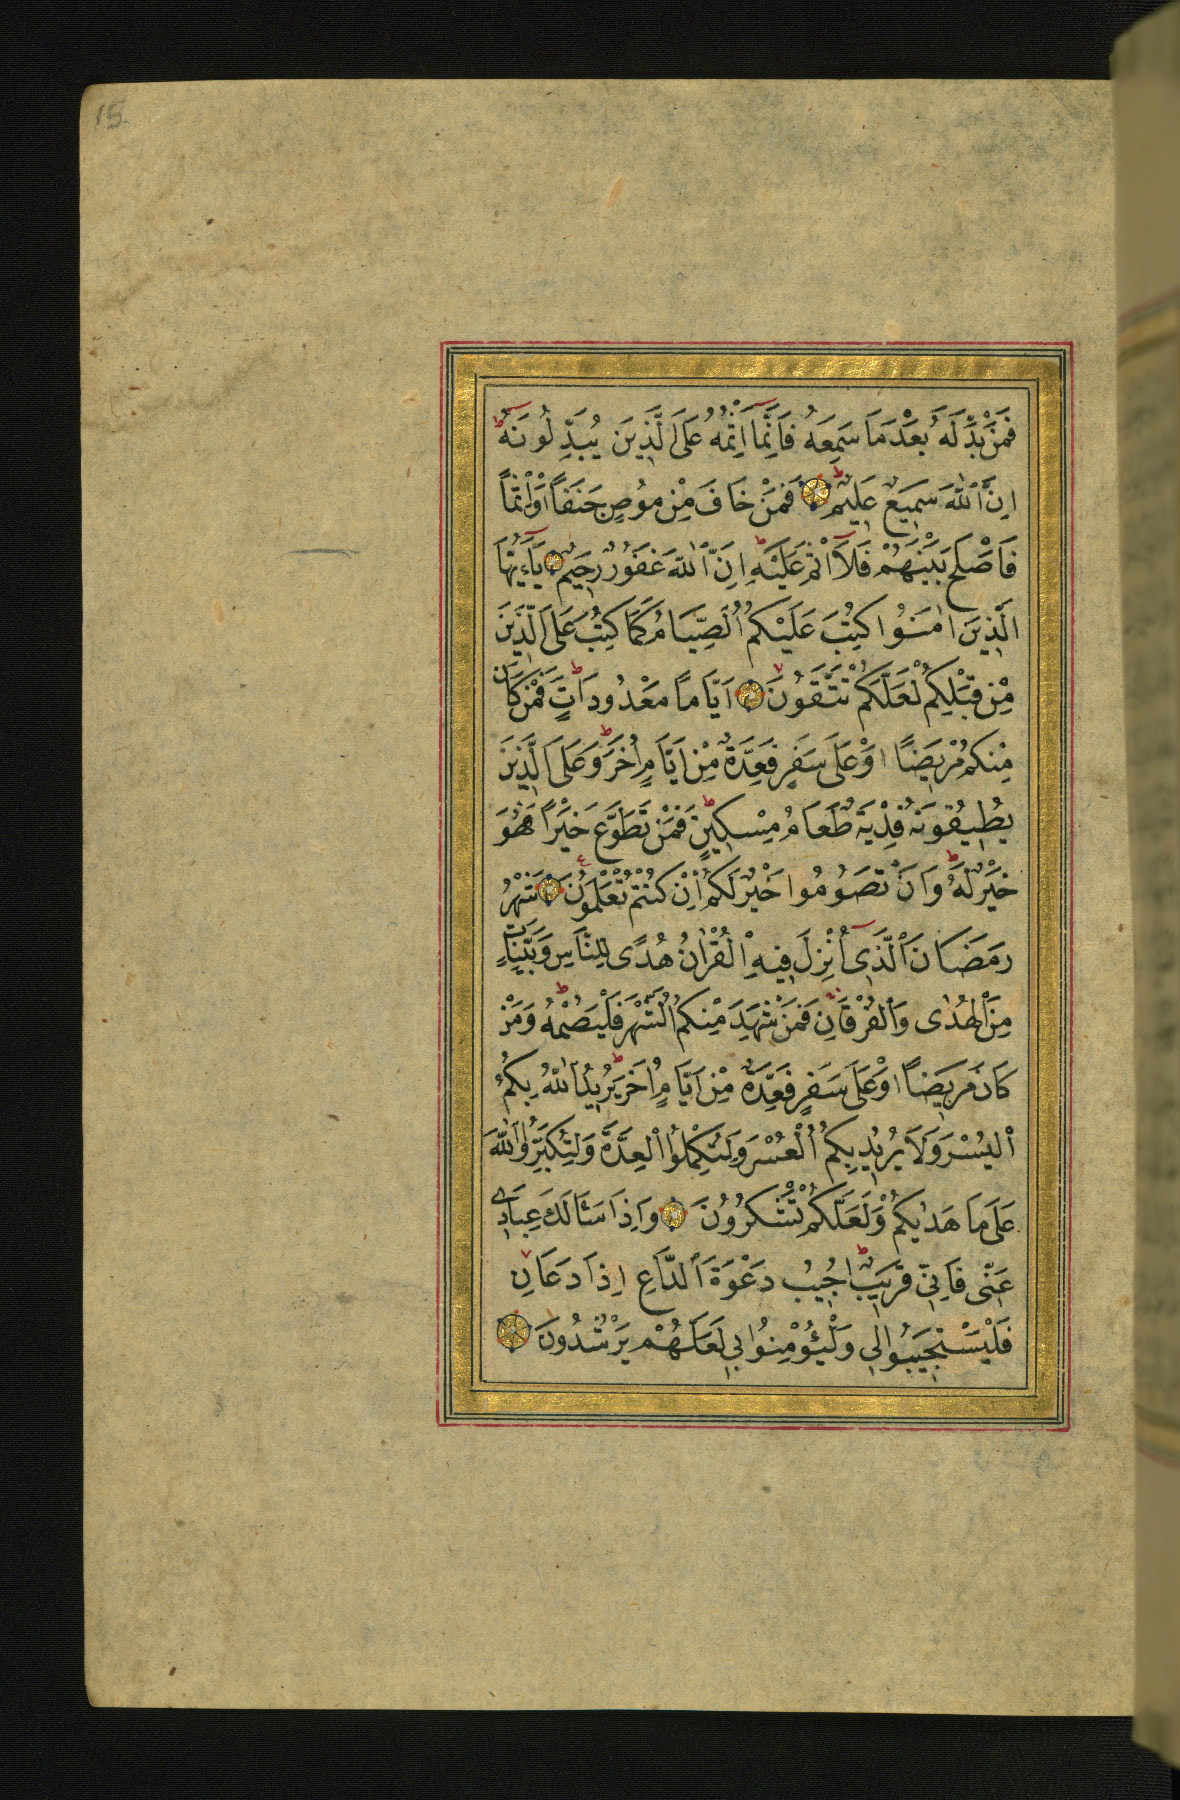 15
فَمَنْ بَدَّلَهُ بَعْدَ مَا سَمِعَهُ فَاِنَّمَا اِثْمُهُ عَلَى الَّذِينَ يُبَدِّلُونَهُ
اِنَّ ٱللّٰهَ سَمِيعٌ عَلِيمٌ فَمَنْ خَافَ مِنْ مُوصٍ جَنَفًا اَوْ اِثْمًا
فَاَصْلَحَ بَيْنَهُمْ فَلَا اِثْمَ عَلَيْهِ اِنَّ ٱللّٰهَ غَفُورٌ رَحِيمٌ يَا ءَيُّهَا
الَّذِينَ اٰمَنُوا كُتِبَ عَلَيْكُمُ الصِّيَامُ كَمَا كُتِبَ عَلَى الَّذِينَ
مِنْ قَبْلِكُمْ لَعَلَّكُمْ تَتَّقُونَ اَيَّامًا مَعْدُودَاتٍ فَمَنْ كَانَ
مِنْكُمْ مَرِيضًا اَوْ عَلَى سَفَرٍ فَعِدَّةٌ مِنْ اَيَّامٍ اُخَرَ وَعَلَى الَّذِينَ
يُطِيقُونَهُ فِدْيَةٌ طَعَامُ مِسْكِينٍ فَمَنْ تَطَوَّعَ خَيْرًا فَهُوَ
خَيْرٌ لَهُ وَاَنْ تَصُومُوا خَيْرٌ لَكُمْ اِنْ كُنْتُمْ تَعْلَمُونَ شَهْرُ
رَمَضَانَ ٱلَّذِى اُنْزِلَ فِيهِ الْقُرْاٰنُ هُدًى لِلنَّاسِ وَبَيِّنَاتٍ
مِنَ الْهُدٰى وَالْفُرْقَانِ فَمَنْ شَهِدَ مِنْكُمُ الشَّهْرَ فَلْيَصُمْهُ وَمَنْ
كَانَ مَرِيضًا اَوْ عَلَى سَفَرٍ فَعِدَّةٌ مِنْ اَيَّامٍ اُخَرَ يُرِيدُ اللّٰهُ بِكُمُ
الْيُسْرَ وَلَا يُرِيدُ بِكُمُ الْعُسْرَ وَلِتُكْمِلُوا الْعِدَّةَ وَلِتُكَبِّرُوا اللّٰهَ
عَلَى مَا هَدٰيكُمْ وَلَعَلَّكُمْ تَشْكُرُونَ وَاِذَا سَئَالَكَ عِبَادِى
عَنِّى فَاِنِّى قَرِيبٌ اُجِيبُ دَعْوَةَ ٱلدَّاعِ اِذَا دَعَانِ
فَلْيَسْتَجِيبُوا لِى وَلْيُؤْمِنُوا بِى لَعَلَّهُمْ يَرْشُدُونَ